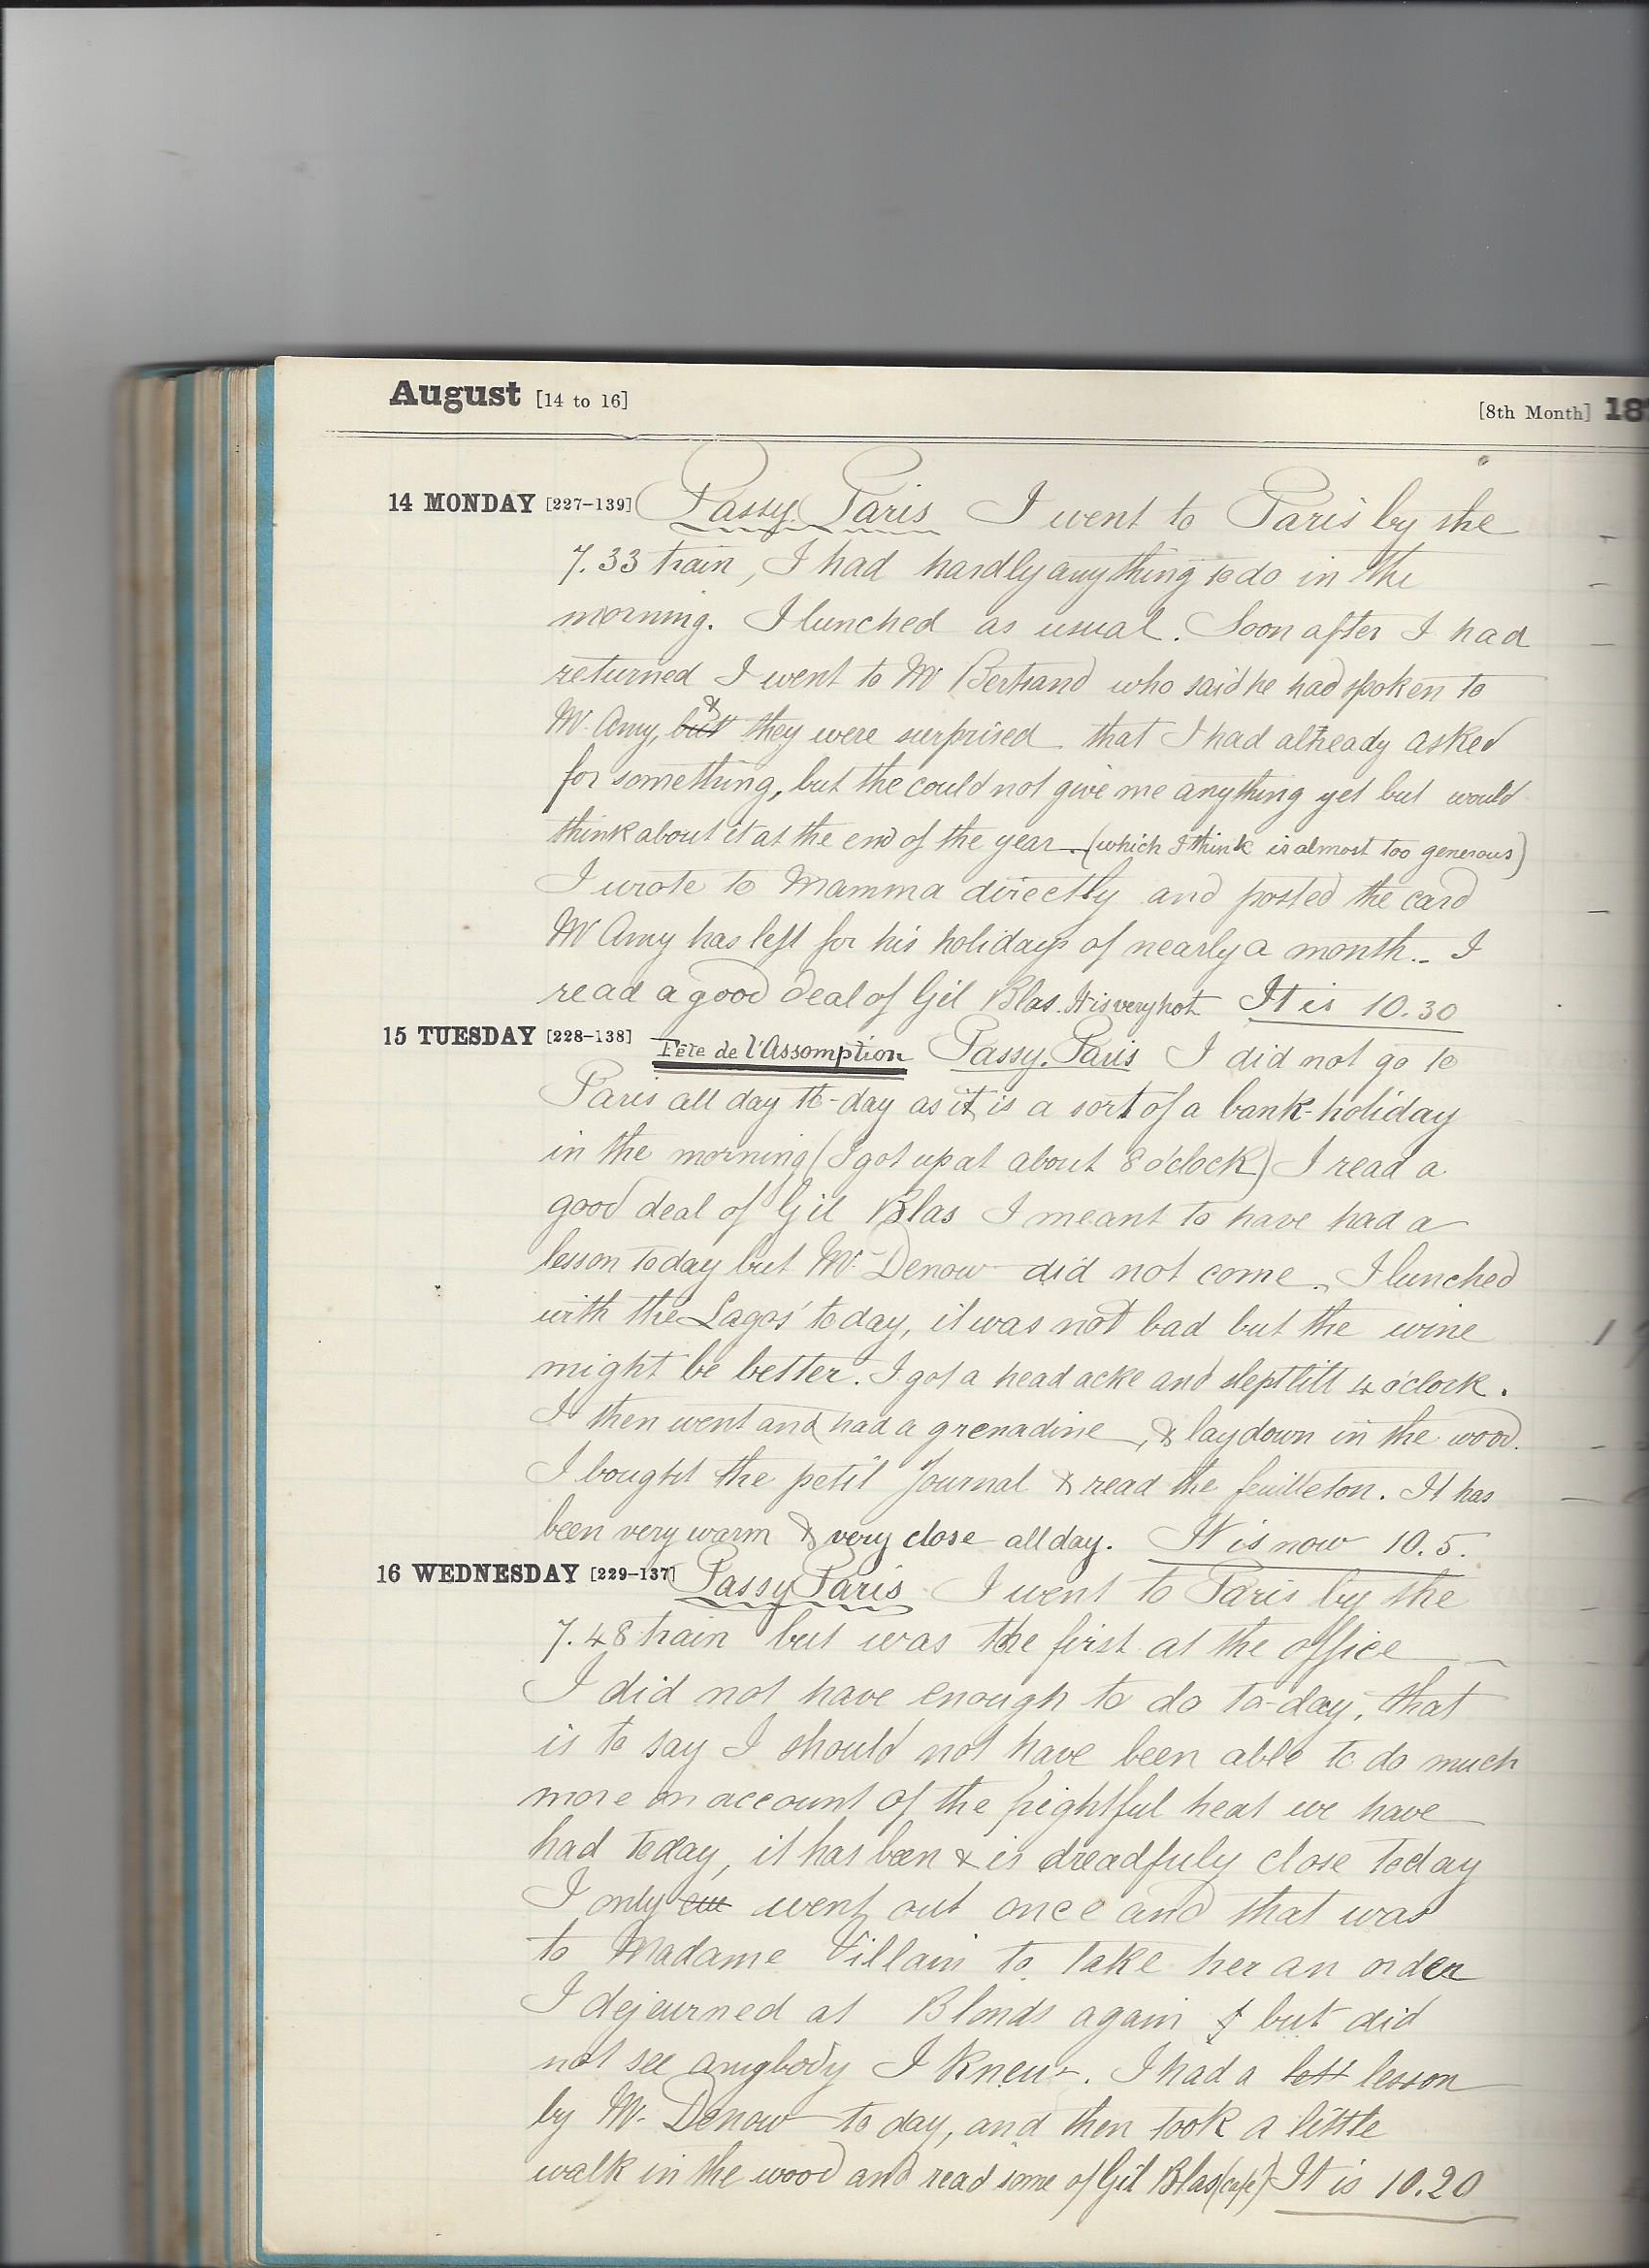 August [14 to 16] [8th Month] 18
14 MONDAY [227-139] Passy. Paris I went to Paris by the
7.33 train, I had hardly anything to do in the
morning. I lunched as usual. Soon after I had
returned I went to Mr Bertrand who said he had spoken to
Mr. Amy, but & they were surprised that I had already asked
for something, but the could not give me anything yet but would
think about it at the end of the year. (which I think is almost too generous)
I wrote to Mamma directly and posted the card
Mr Amy has left for his holidays of nearly a month.. I
read a good deal of Gil Blas. It is very hot It is 10.30
15 TUESDAY [228-138] Fête de l'Assomption Passy. Paris I did not go to
Paris all day to-day as it is a sort of a bank-holiday
in the morning (I got up at about 8 o'clock) I read a
good deal of Gil Blas I meant to have had a
lesson today but Mr. Denow did not come. I lunched
with the Lagos' today, it was not bad but the wine
might be better. I got a head acke and slept till 4 o'clock.
I then went and had a grenadine, & lay down in the wood.
I bought the petit Journal & read the feuilleton. It has
been very warm & very close all day. It is now 10.5.
16 WEDNESDAY [229-137] Passy Paris I went to Paris by the
7.48 train but was the first at the office
I did not have enough to do to-day, that
is to say I should not have been able to do much
more on account of the frightful heat we have
had today, it has been & is dreadfuly close today
I only went out once and that was
to Madame Villain to take her an order
I dejeurned at Blonds again but did
not see anybody I knew. I had a lesson
by Mr. Denow to day, and then took a little
walk in the wood and read some of Gil Blas (café) It is 10.20